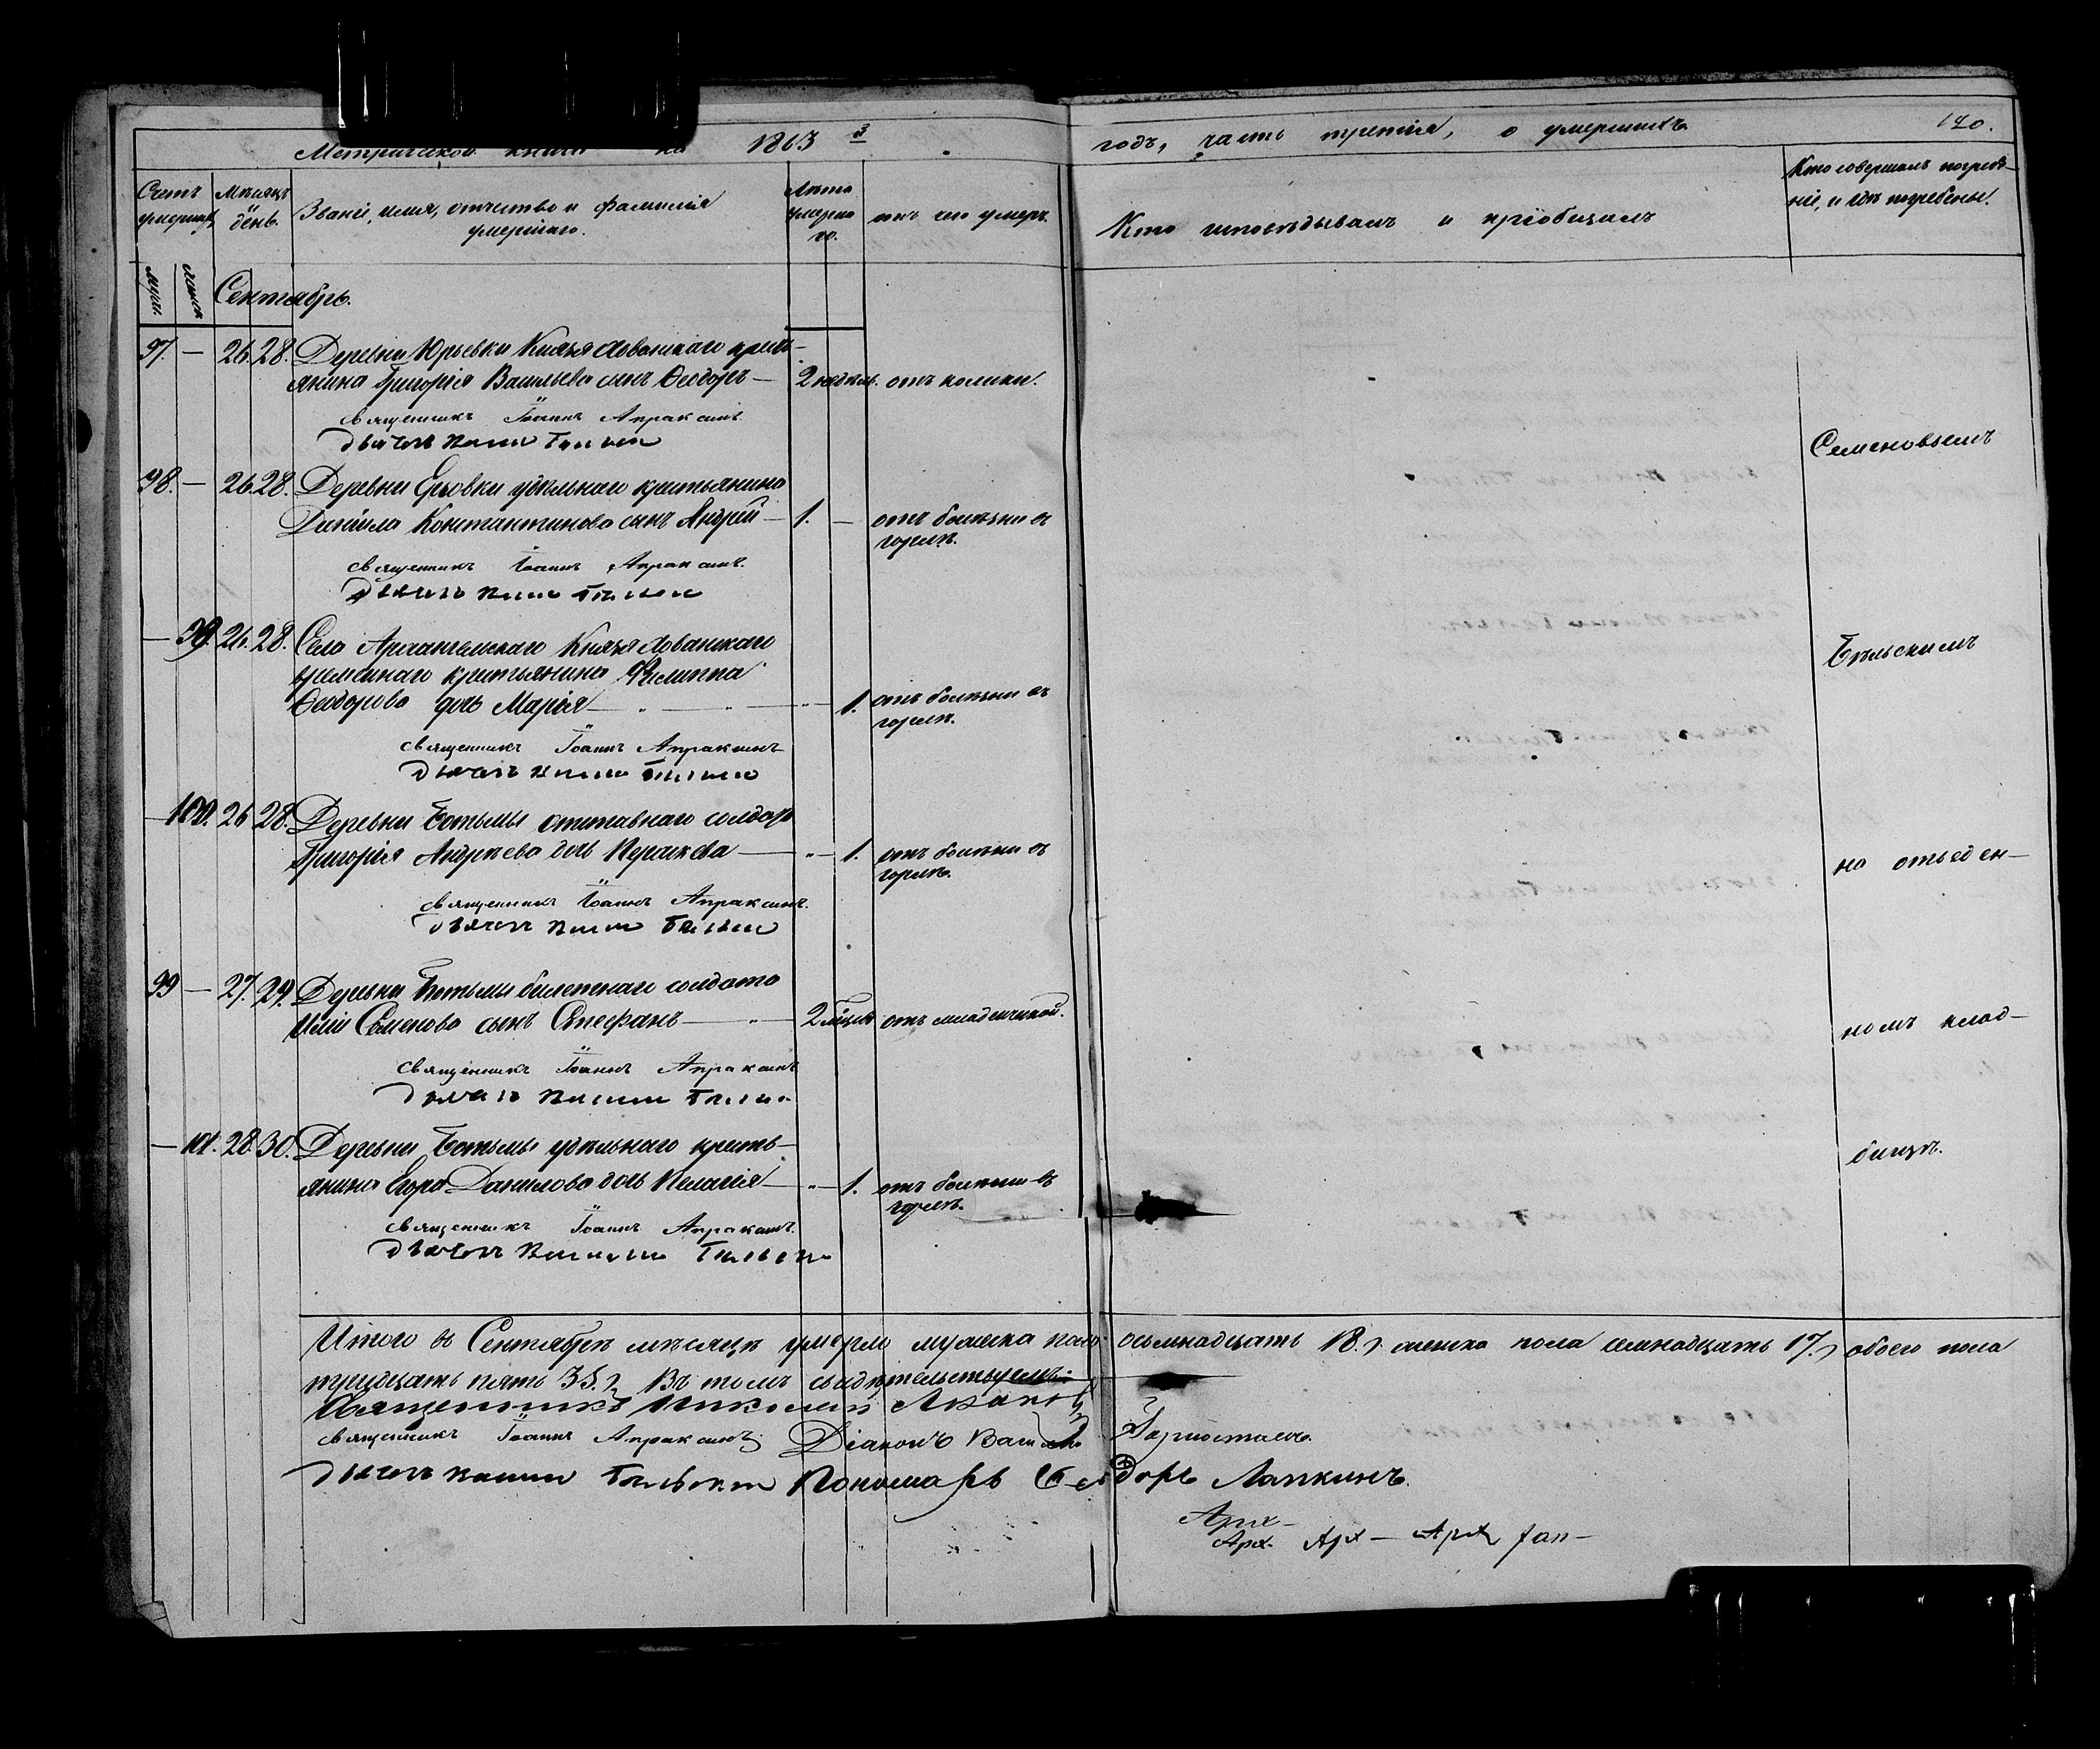 Метрической книги на 1863 й
годъ, часть третія, о умершихъ
140.
Счетъ умершихъ
Мѣсяцъ и день.
Званіе, имя, отчество и фамилія
умершаго.
Лѣта
умерша
го.
отъ чего умеръ.
Кто исповѣдывалъ и пріобщалъ
Кто совершалъ погребе-
ніе, и гдѣ погребены.
муж.
женск.
Сентябрь.
97. — 26. 28. Деревни Юрьевки Князя Хованскаго кресть-
янина Григорія Васильева сынъ Ѳеодоръ — 2 недѣль. отъ колики.
священникъ Іоаннъ Апраксинъ.
дьячекъ
Семеновымъ
98. — 26. 28. Деревни Ерзовки удѣльнаго крестьянина
Даніила Константинова сынъ Андрей — 1. — отъ болѣзни въ
горлѣ.
священникъ Іоаннъ Апраксинъ.
дьячекъ
— 99. 26. 28. Села Архангельскаго Князя Хованскаго
крестьянина Филиппа
Ѳеодорова дочь Марія — " — " — " — 1. отъ болѣзни въ
горлѣ.
Бѣльскимъ
священникъ Іоаннъ Апраксинъ
дьячекъ
— 100. 26. 28. Деревни Ботьмы отставнаго солдата
Григорія Андреева дочь — " — 1. отъ болѣзни въ
горлѣ.
на отведен-
священникъ Іоаннъ Апраксинъ.
дьячекъ
99 — 27. 29. Деревни Ботьмы билетнаго солдата
Иліи Семенова сынъ Стефанъ — " — 2 мѣсяц. отъ младенческой.
номъ клад-
священникъ Іоаннъ Апраксинъ
дьячекъ
— 101. 28. 30. Деревни Ботьмы удѣльнаго кресть-
янина Егора Данилова дочь Пелагія — " — 1. отъ болѣзни въ
горлѣ.
бищѣ.
священникъ Іоаннъ Апраксинъ.
дьячекъ
Итого въ Сентябрѣ мѣсяцѣ умерло мужска пола осьмнадцать 18. женска пола семнадцать 17. обоего пола
тридцать пять 35. Въ томъ свидѣтельствуемъ:
Священникъ Николай
священникъ Іоаннъ Апраксинъ Діаконъ Василій Горностаевъ.
дьячекъ Пономарь Ѳеодоръ Лапкинъ.
Арх-
Арх- Арх- Арх